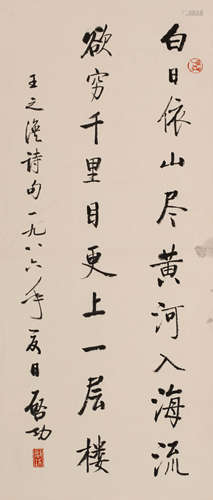 白日依山尽黄河入海流
欲穷千里目更上一层楼
王之涣诗句一九八六年夏日启功